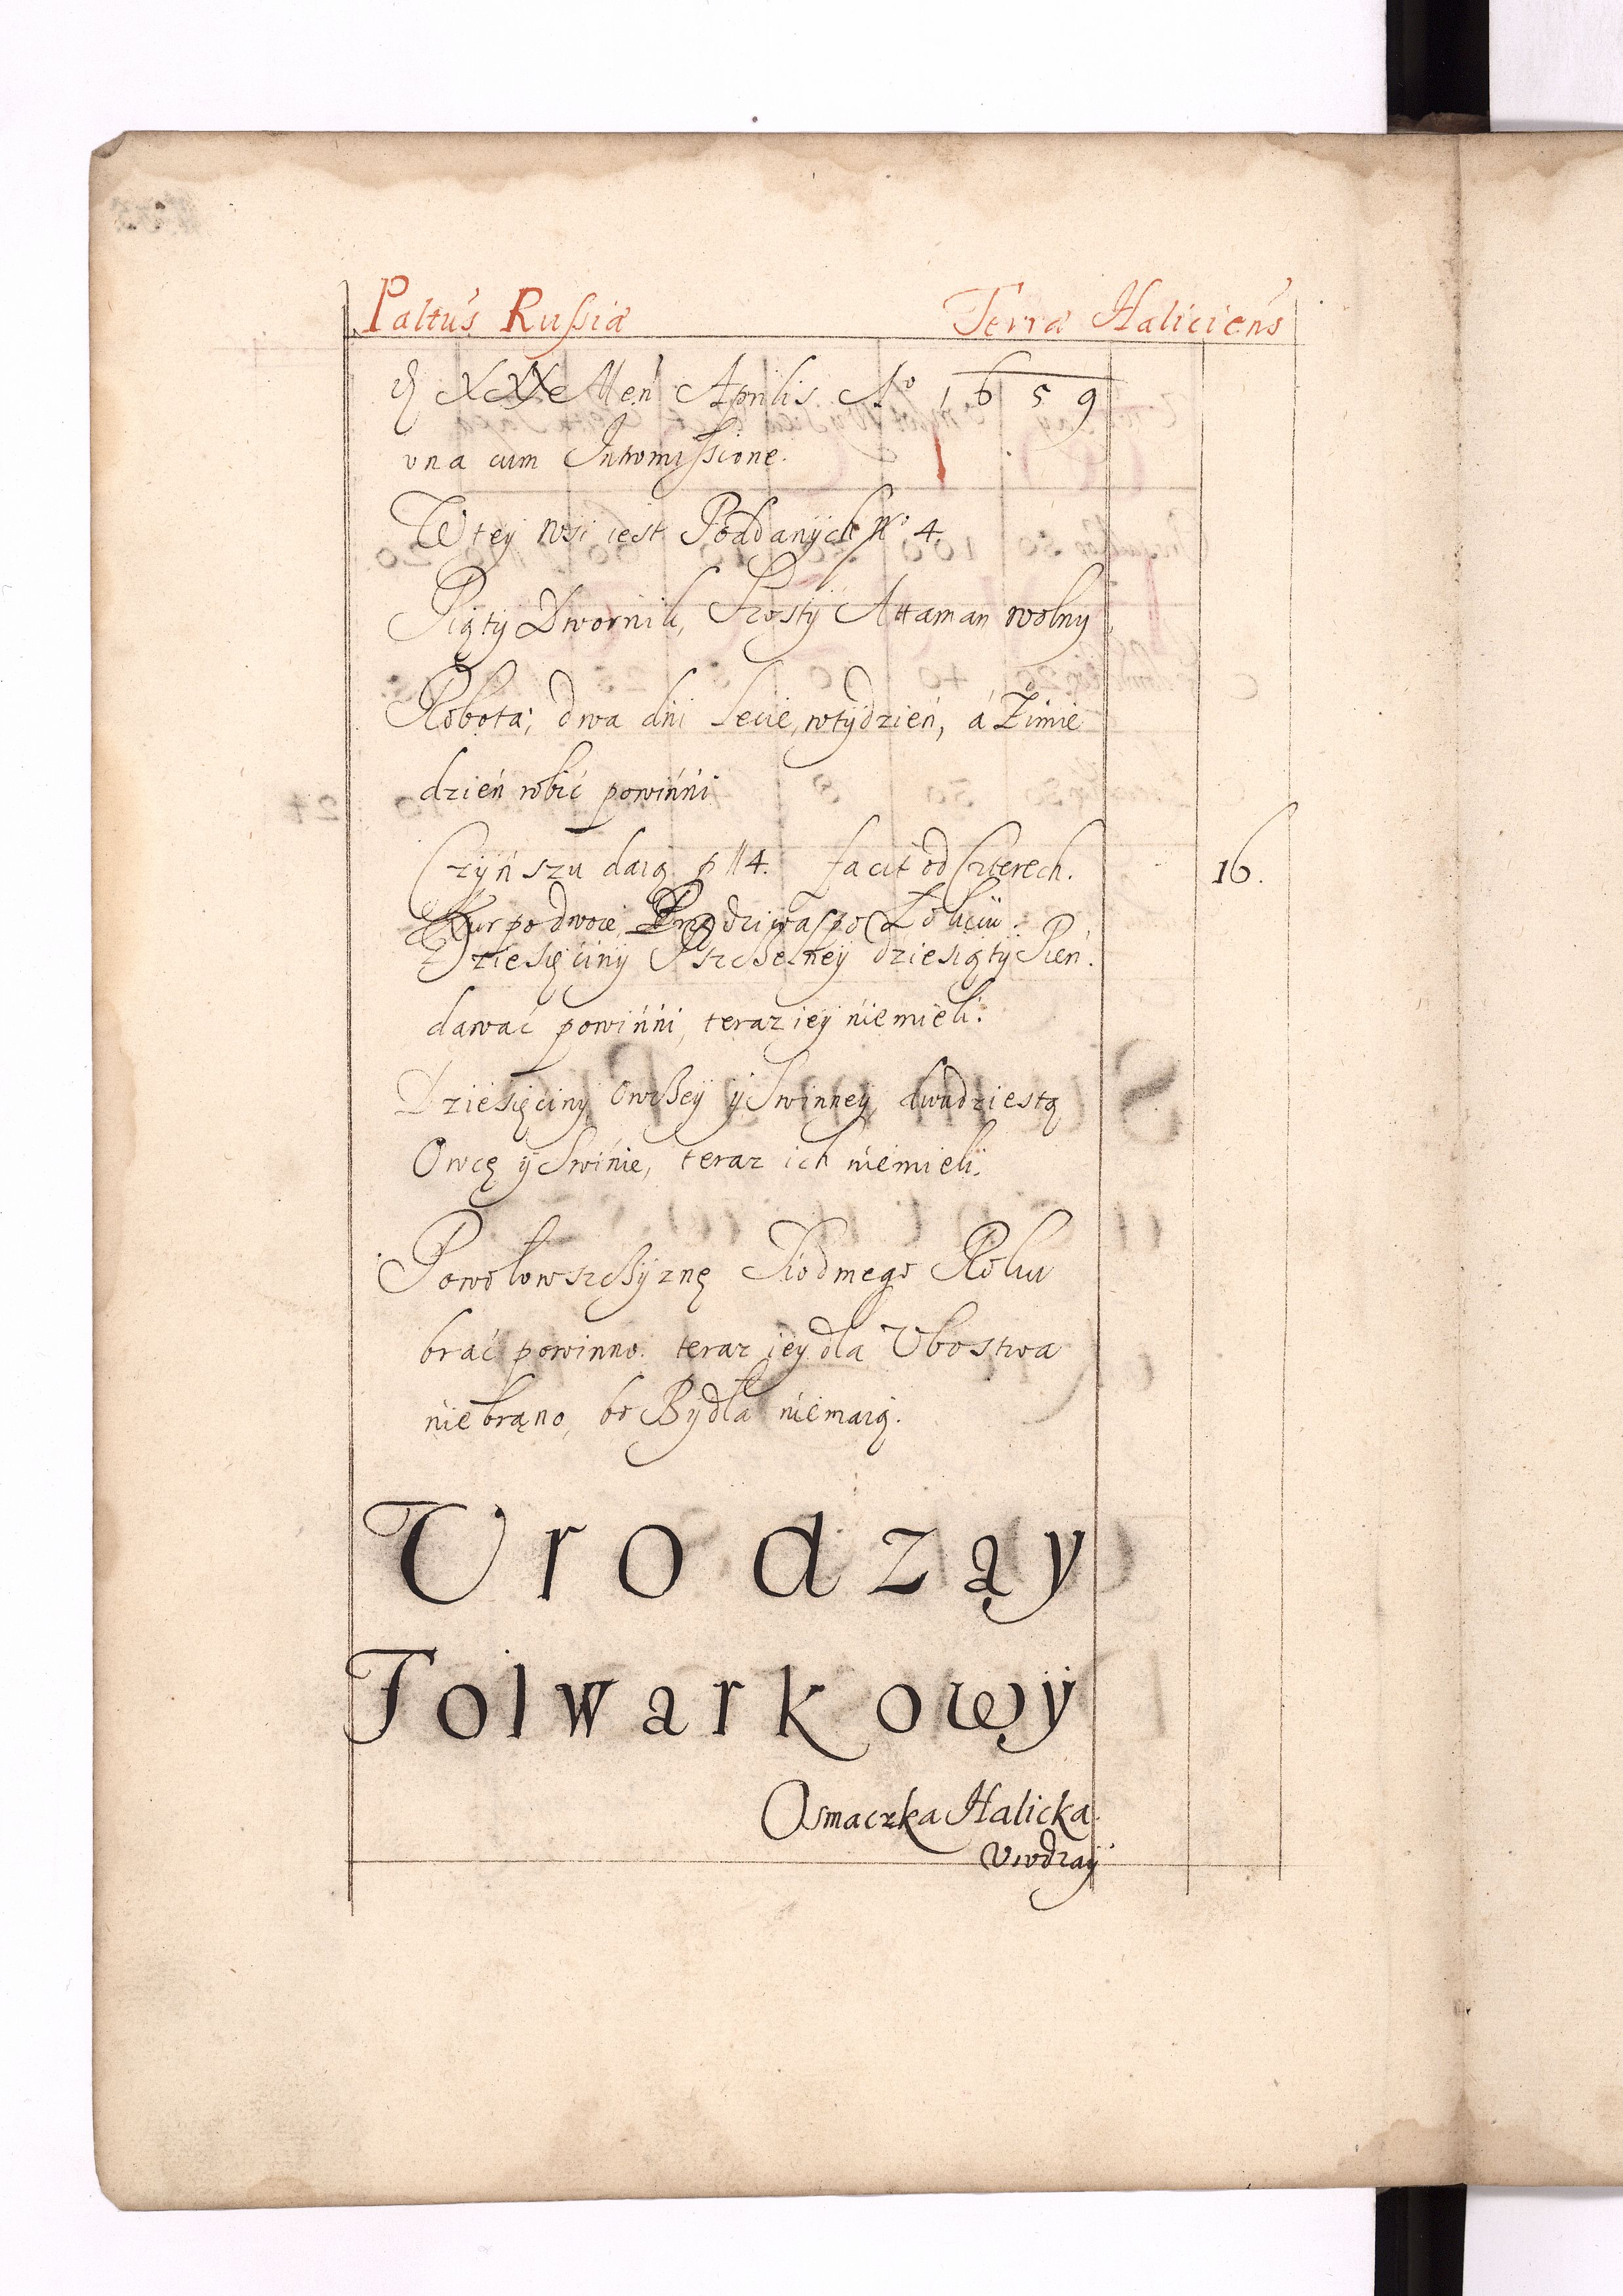 Paltus Russiæ Terræ Haliciens
XXX Men Aprilis Ao 1659
vna cum Intromissione.
W tey wsi iest Poddanych No 4.
Piąty Dwornik, Szosty Attaman wolny
Robota; dwa dni Lecie, w tydzień, á Zimie
dzień robić powinni
Czynszu daią p fl 4. facit od Czterech. 16.
Kur po dwoie Przędziwa po Łokciu.
Dziesięciny Pszczelney dziesiąty Pień.
dawać powinni, teraz iey niemieli.
Dziesięciny Owczey y Swinney, dwudziestą
Owcę y Swinie, teraz ich niemieli.
Powołowszczyznę Siodmego Roku
brać powinno. teraz iey dla Vbostwa
niebrąno, bo Bydła niemaią.
Vrodząy
Folwarkowy
Osmaczka Halicka
Vrodzay